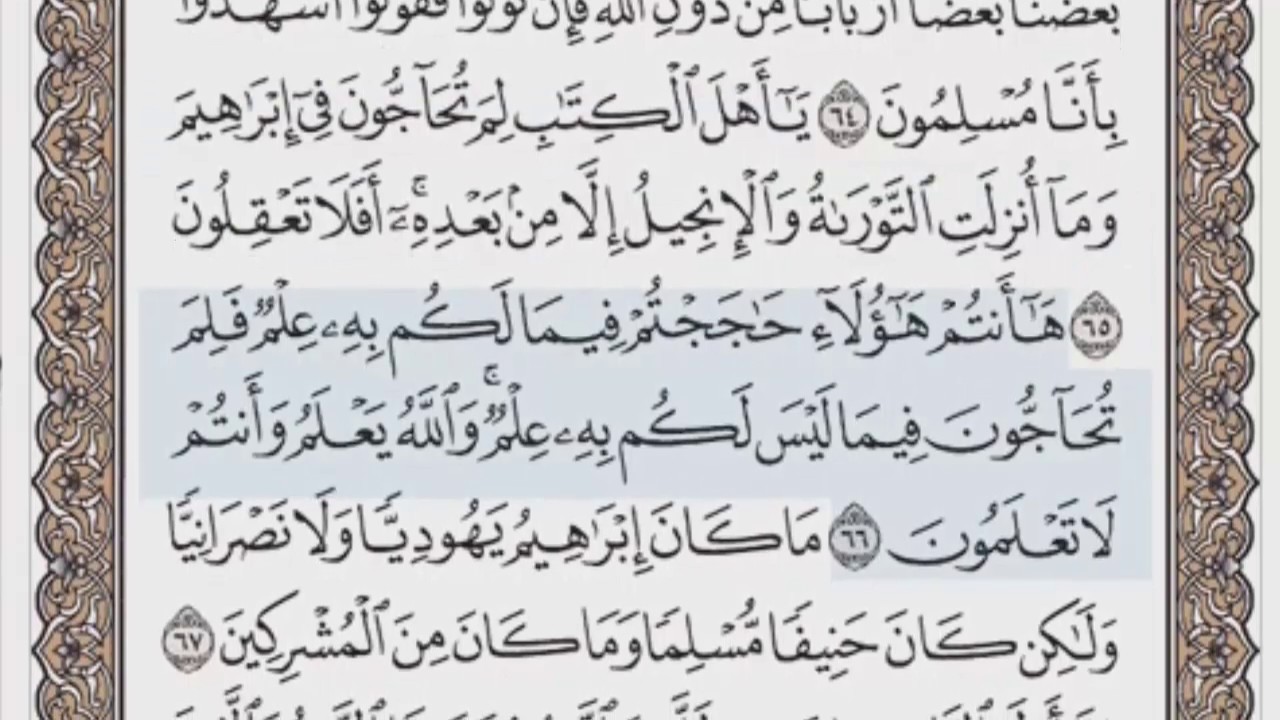 بَعۡضُنَا بَعۡضًا أَرۡبَابٗا مِّن دُونِ ٱللَّهِۚ فَإِن تَوَلَّوۡاْ فَقُولُواْ ٱشۡهَدُواْ
بِأَنَّا مُسۡلِمُونَ ٦٤ يَٰٓأَهۡلَ ٱلۡكِتَٰبِ لِمَ تُحَآجُّونَ فِيٓ إِبۡرَٰهِيمَ
وَمَآ أُنزِلَتِ ٱلتَّوۡرَىٰةُ وَٱلۡإِنجِيلُ إِلَّا مِنۢ بَعۡدِهِۦٓۚ أَفَلَا تَعۡقِلُونَ
٦٥ هَٰٓأَنتُمۡ هَٰٓؤُلَآءِ حَٰجَجۡتُمۡ فِيمَا لَكُم بِهِۦ عِلۡمٞ فَلِمَ
تُحَآجُّونَ فِيمَا لَيۡسَ لَكُم بِهِۦ عِلۡمٞۚ وَٱللَّهُ يَعۡلَمُ وَأَنتُمۡ
لَا تَعۡلَمُونَ ٦٦ مَا كَانَ إِبۡرَٰهِيمُ يَهُودِيّٗا وَلَا نَصۡرَانِيّٗا
وَلَٰكِن كَانَ حَنِيفٗا مُّسۡلِمٗا وَمَا كَانَ مِنَ ٱلۡمُشۡرِكِينَ ٦٧